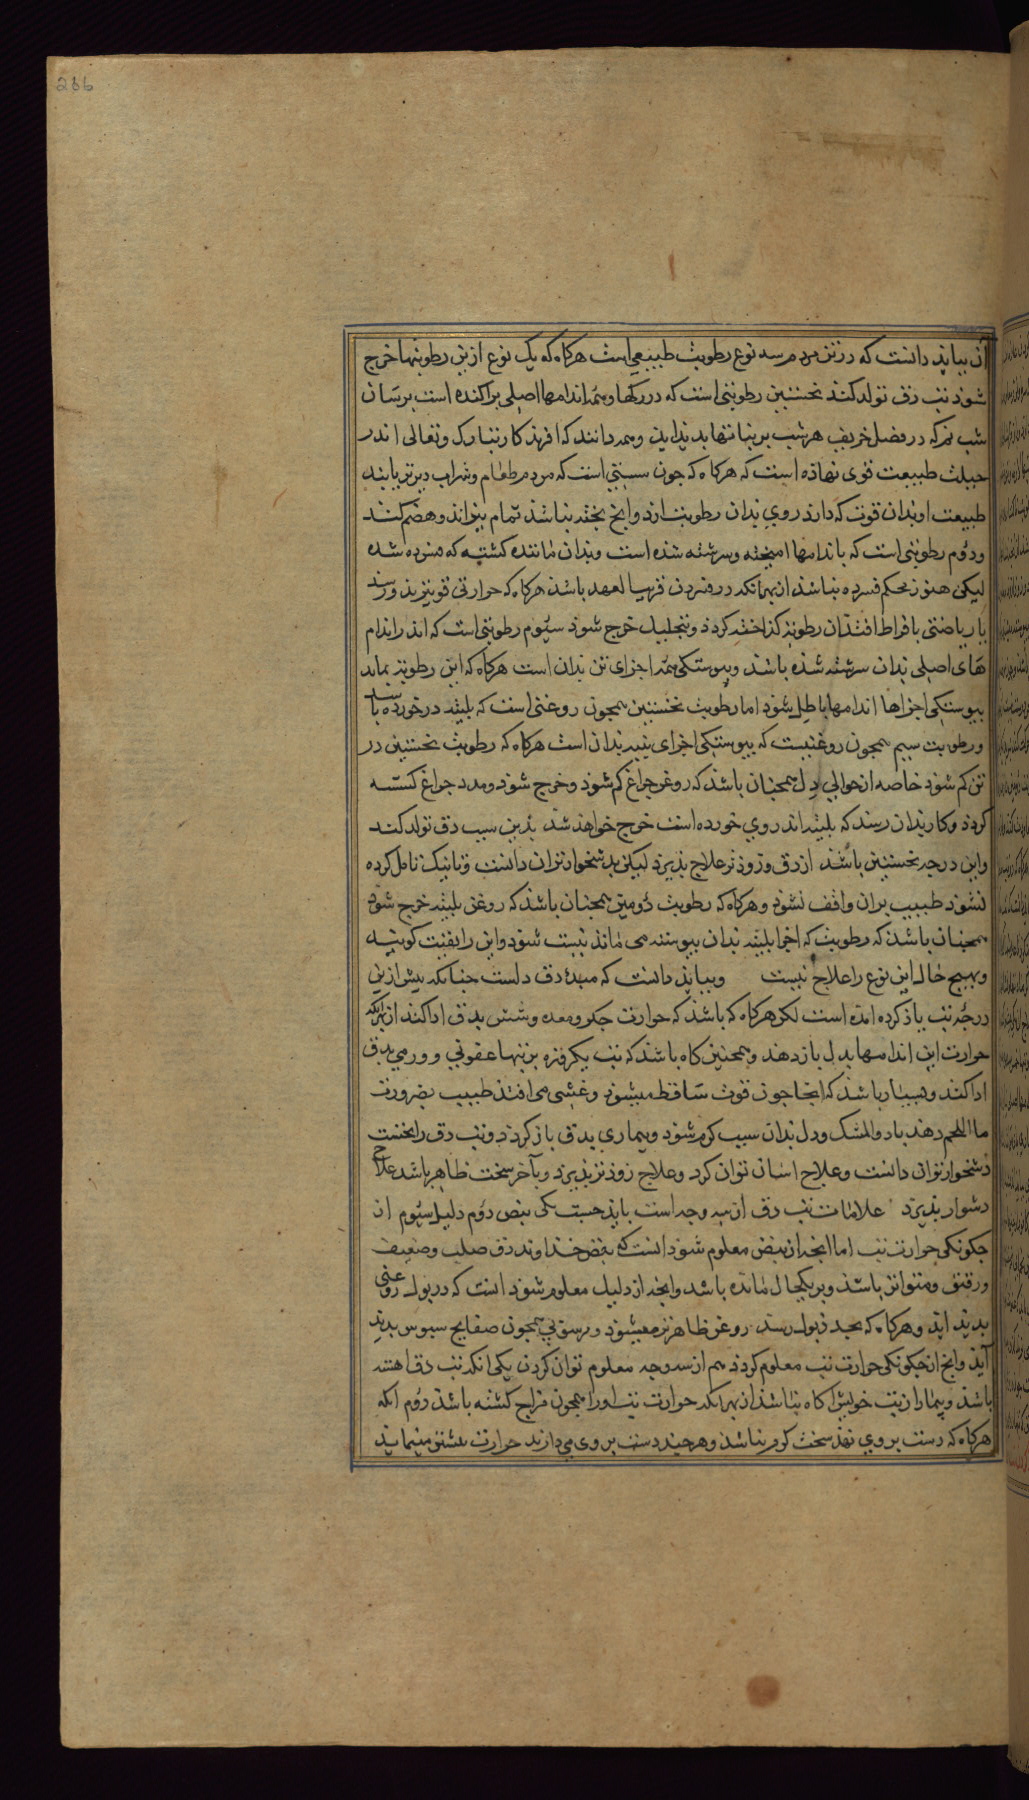 266
آن بباید دانست که در تن مردم سه نوع رطوبت طبیعی است هرکاه که یک نوع ازین رطوبتها خرج
شود تب دق تولد کند نخستین رطوبتی است که در رکها و همه اندامها اصلی پراکنده است برسان
شب نم که در فصل خریف هر شب بر نباتها پدید اید و همه دانند که افریذکار تبارک و تعالی اندر
طبیعت قوی نهاده است که هرکاه که چون سببی است که مردم طعام و شراب دیرتر یابند
طبیعت او بدان قوت که دارد روی بدان رطوبت ارد و انج پخته نباشد تمام بپزاند و هضم کند
و دوم رطوبتی است که با اندامها امیخته و سرشته شده است و بدان مانده کشته که فسرده شده
لیکن هنوز محکم فسرده نباشد از بهر انکه در فسردن قریب العهد باشد هرکاه که حرارتی قوی تر بدو رسد
یا ریاضتی بافراط افتد ان رطوبت کداخته کردد و بتحلیل خرج شود سیوم رطوبتی است که اندر اندام
های اصلی بدان سرشته شده باشد و پیوستکی همه اجزای تن بدان است هرکاه که این رطوبت نماند
پیوستکی اجزاها اندامها باطل شود اما رطوبت نخستین همجون روغنی است که بلیته در خورده باشد
و رطوبت سیم همجون روغنیست که پیوستکی اجزای پنبه بدان است هرکاه که رطوبت نخستین در
تن کم شود خاصه از حوالی دل همجنان باشد که روغن جراغ کم شود و خرج شود و مدد جراغ کسسته
کردد و کار بدان رسد که بلیته اندر روی خورده است خرج خواهد شد بدین سبب دق تولد کند
و این درجه نخستین باشد از دق و زودتر علاج پذیرد لیکن بدشخوار توان دانست و تا نیک تامل کرده
نشود طبیب بران واقف نشود و هرکاه که رطوبت دومین همجنان باشد که روغن بلیته خرج شود
همجنان باشد که رطوبت که اجزا بلیته بدان پیوسته می ماند نیست شود و این را
و بهیچ حال این نوع را علاج نیست و بباید دانست که مبدأ دق دلست جنانکه پیش ازین
درجه تب یاد کرده امده است لکن هرکاه که باشد که حرارت جکر و معده و شش بدق ادا کند از بهر انکه
حرارت این اندامها بدل باز دهند و همجنین کاه باشد که تب یکروزه و تبها عفونی و ورمی بدق
ادا کند و بسیار باشد که انجا جون قوت ساقط میشود و غشی می افتد طبیب بضرورت
ما اللحم دهد با دوا المشک و دل بدان سبب کرم شود و بیماری بدق باز کردد و تب دق را نخست
دشخوار توان دانست و علاج اسان توان کرد و علاج زودتر پذیرد و بآخر سخت ظاهر باشد علاج
دشوار پذیرد علامات تب دق از سه وجه است باید جست یکی نبض دوم دلیل سیوم از
جکونکی حرارت تب اما انجه از نبض معلوم شود انست که نبض خداوند دق صلب و ضعیف
و رقیق و متواتر باشد و بر یکحال مانده باشد و انجه از دلیل معلوم شود انست که در بول روغنی
پدید اید و هرکاه که بحد ذبول رسد روغن ظاهرتر میشود و رسوبی همجون صفایح سبوس پدید
آید و انج از جکونکی حرارت تب معلوم کردد هم از سه وجه معلوم توان کردن یکی انکه تب دق اهسته
باشد و بیمار از تب خویش اکاه نباشد از بهر انکه حرارت تب اورا همجون مزاج کشته باشد دوم انکه
هرکاه که دست بر وی نهند سخت کرم نباشد و هرجند دست بر وی می دارند حرارت بیشتر مینماید